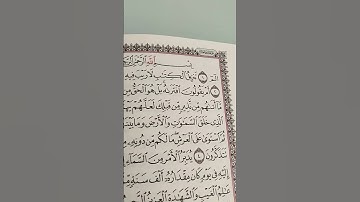 بِسْمِ ٱللَّهِ ٱلرَّحْمَٰنِ
الٓمٓ ١ تَنزِيلُ ٱلْكِتَٰبِ لَا رَيْبَ فِيهِ
أَمْ يَقُولُونَ ٱفْتَرَىٰهُ بَلْ هُوَ ٱلْحَقُّ مِن
مَّآ أَتَىٰهُم مِّن نَّذِيرٍ مِّن قَبْلِكَ لَعَلَّهُمْ
ٱلَّذِي خَلَقَ ٱلسَّمَٰوَٰتِ وَٱلْأَرْضَ وَمَا
ٱسْتَوَىٰ عَلَى ٱلْعَرْشِ مَا لَكُم مِّن دُونِهِۦ
تَتَذَكَّرُونَ ٤ يُدَبِّرُ ٱلْأَمْرَ مِنَ ٱلسَّمَآءِ
إِلَيْهِ فِي يَوْمٍ كَانَ مِقْدَارُهُۥٓ أَلْفَ سَنَةٍ
عَٰلِمُ ٱلْغَيْبِ وَٱلشَّهَٰدَةِ ٱلْعَزِيزُ